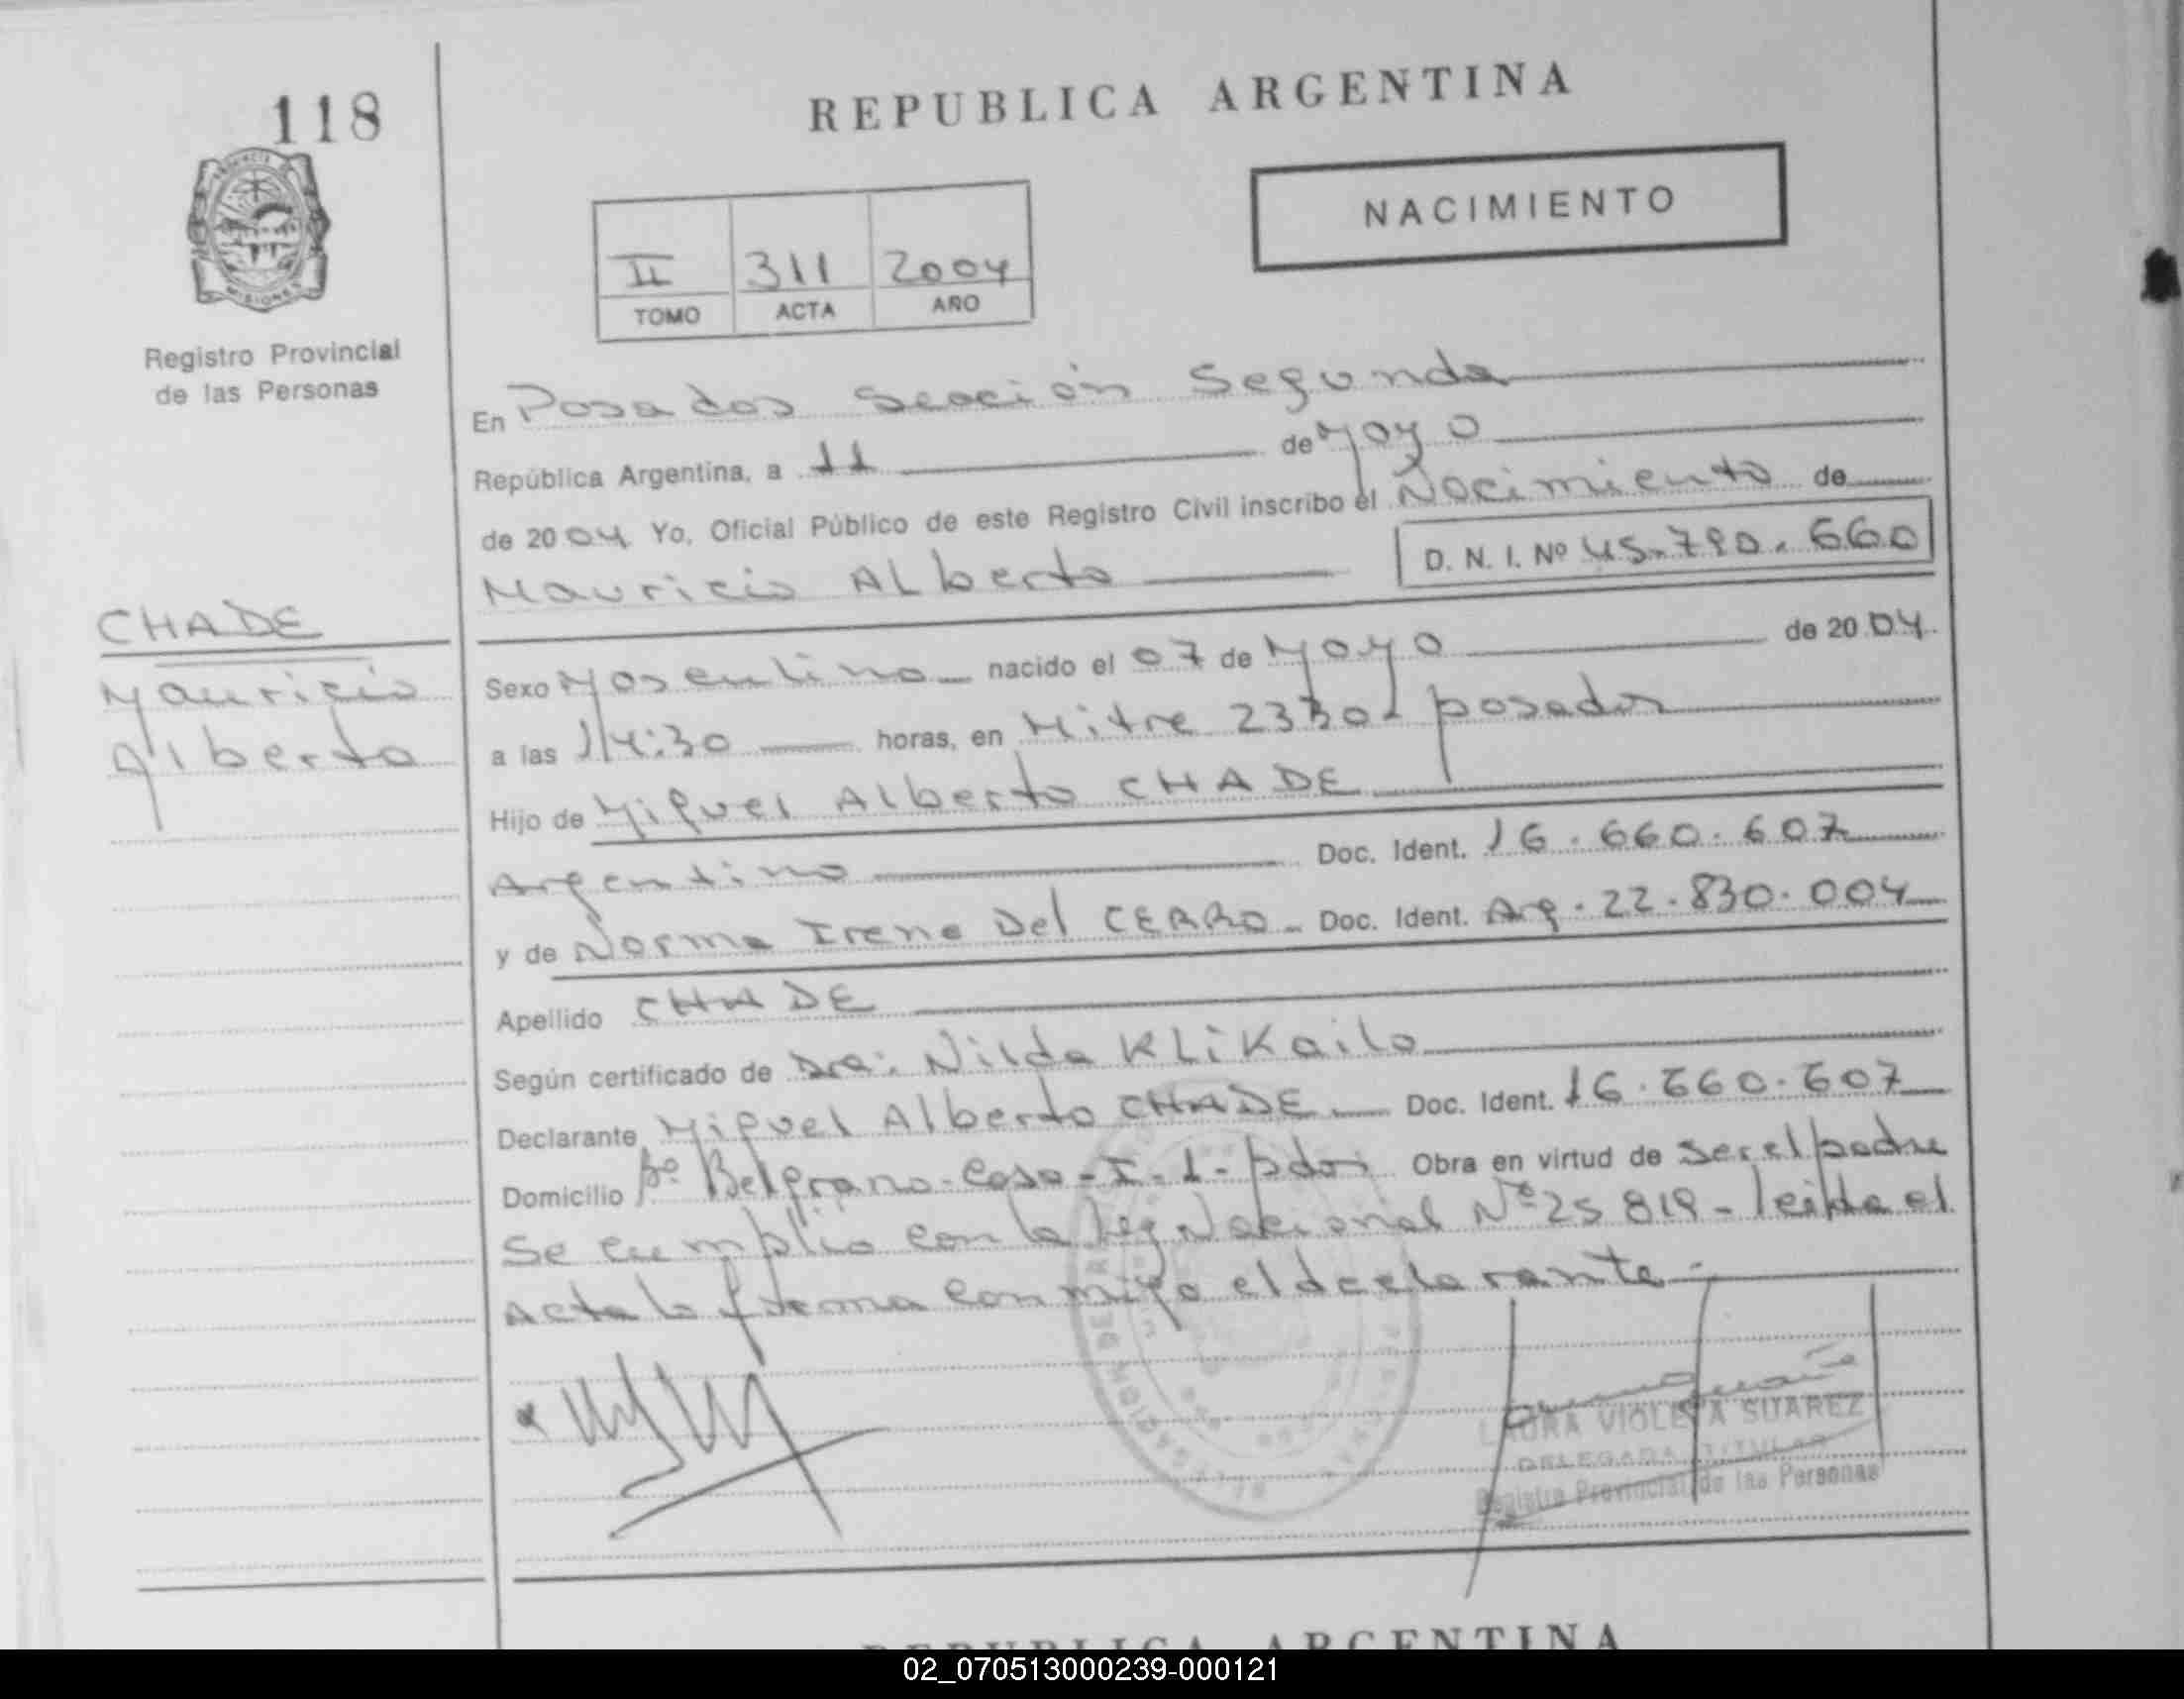 118
REPUBLICA ARGENTINA
NACIMIENTO
II 311 2004
TOMO ACTA AÑO
Registro Provincial
de las Personas
En Posadas Sección Segunda
República Argentina, a 11 de Mayo
de 2004 Yo, Oficial Público de este Registro Civil inscribo el Nacimiento de
Mauricio Alberto D. N. I. Nº 45.790.660
CHADE
Mauricio
Alberto
Sexo Masculino nacido el 07 de Mayo de 2004
a las 14:30 horas, en Mitre 2330 - posadas
Hijo de Miguel Alberto CHADE
Argentino Doc. Ident. 16.660.607
y de Norma Irene Del CERRO - Doc. Ident. Arg. 22.830.004
Apellido CHADE
Según certificado de Dra: Nilda KLiKailo
Declarante Miguel Alberto CHADE Doc. Ident. 16.660.607
Domicilio Bº Belgrano - Casa - I - 1 - pdas Obra en virtud de ser el padre
Se cumplio con la Ley Nacional Nº 25 819 - leida el
Acta la firma conmigo el declarante -
LAURA VIOLETA SUAREZ
DELEGADA TITULAR
Registro Provincial de las Personas
REPUBLICA ARGENTINA
02_070513000239-000121